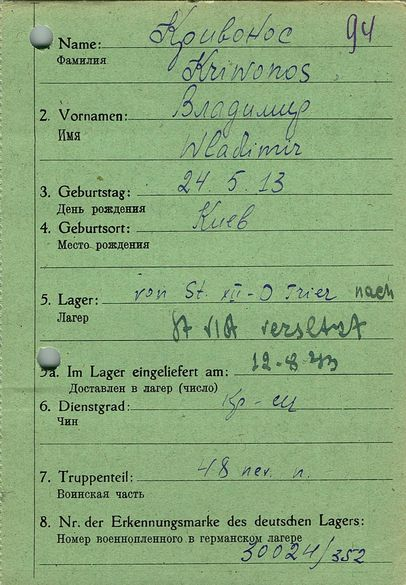 94
Name: Кривонос
Фамилия
Kriwonos
2. Vornamen: Владимир
Имя
Wladimir
3. Geburtstag: 24. 5. 13
День рождения
4. Geburtsort: Киев
Место рождения
5. Lager: von St. XII-D Trier nach
Лагер
St VIA versetzt
5a. Im Lager eingeliefert am: 12-8-43
Доставлен в лагер (число)
6. Dienstgrad: Кр-ец
Чин
7. Truppenteil: 48 п.
Воинская часть
8. Nr. der Erkennungsmarke des deutschen Lagers:
Номер военнопленного в германском лагере
30024/352